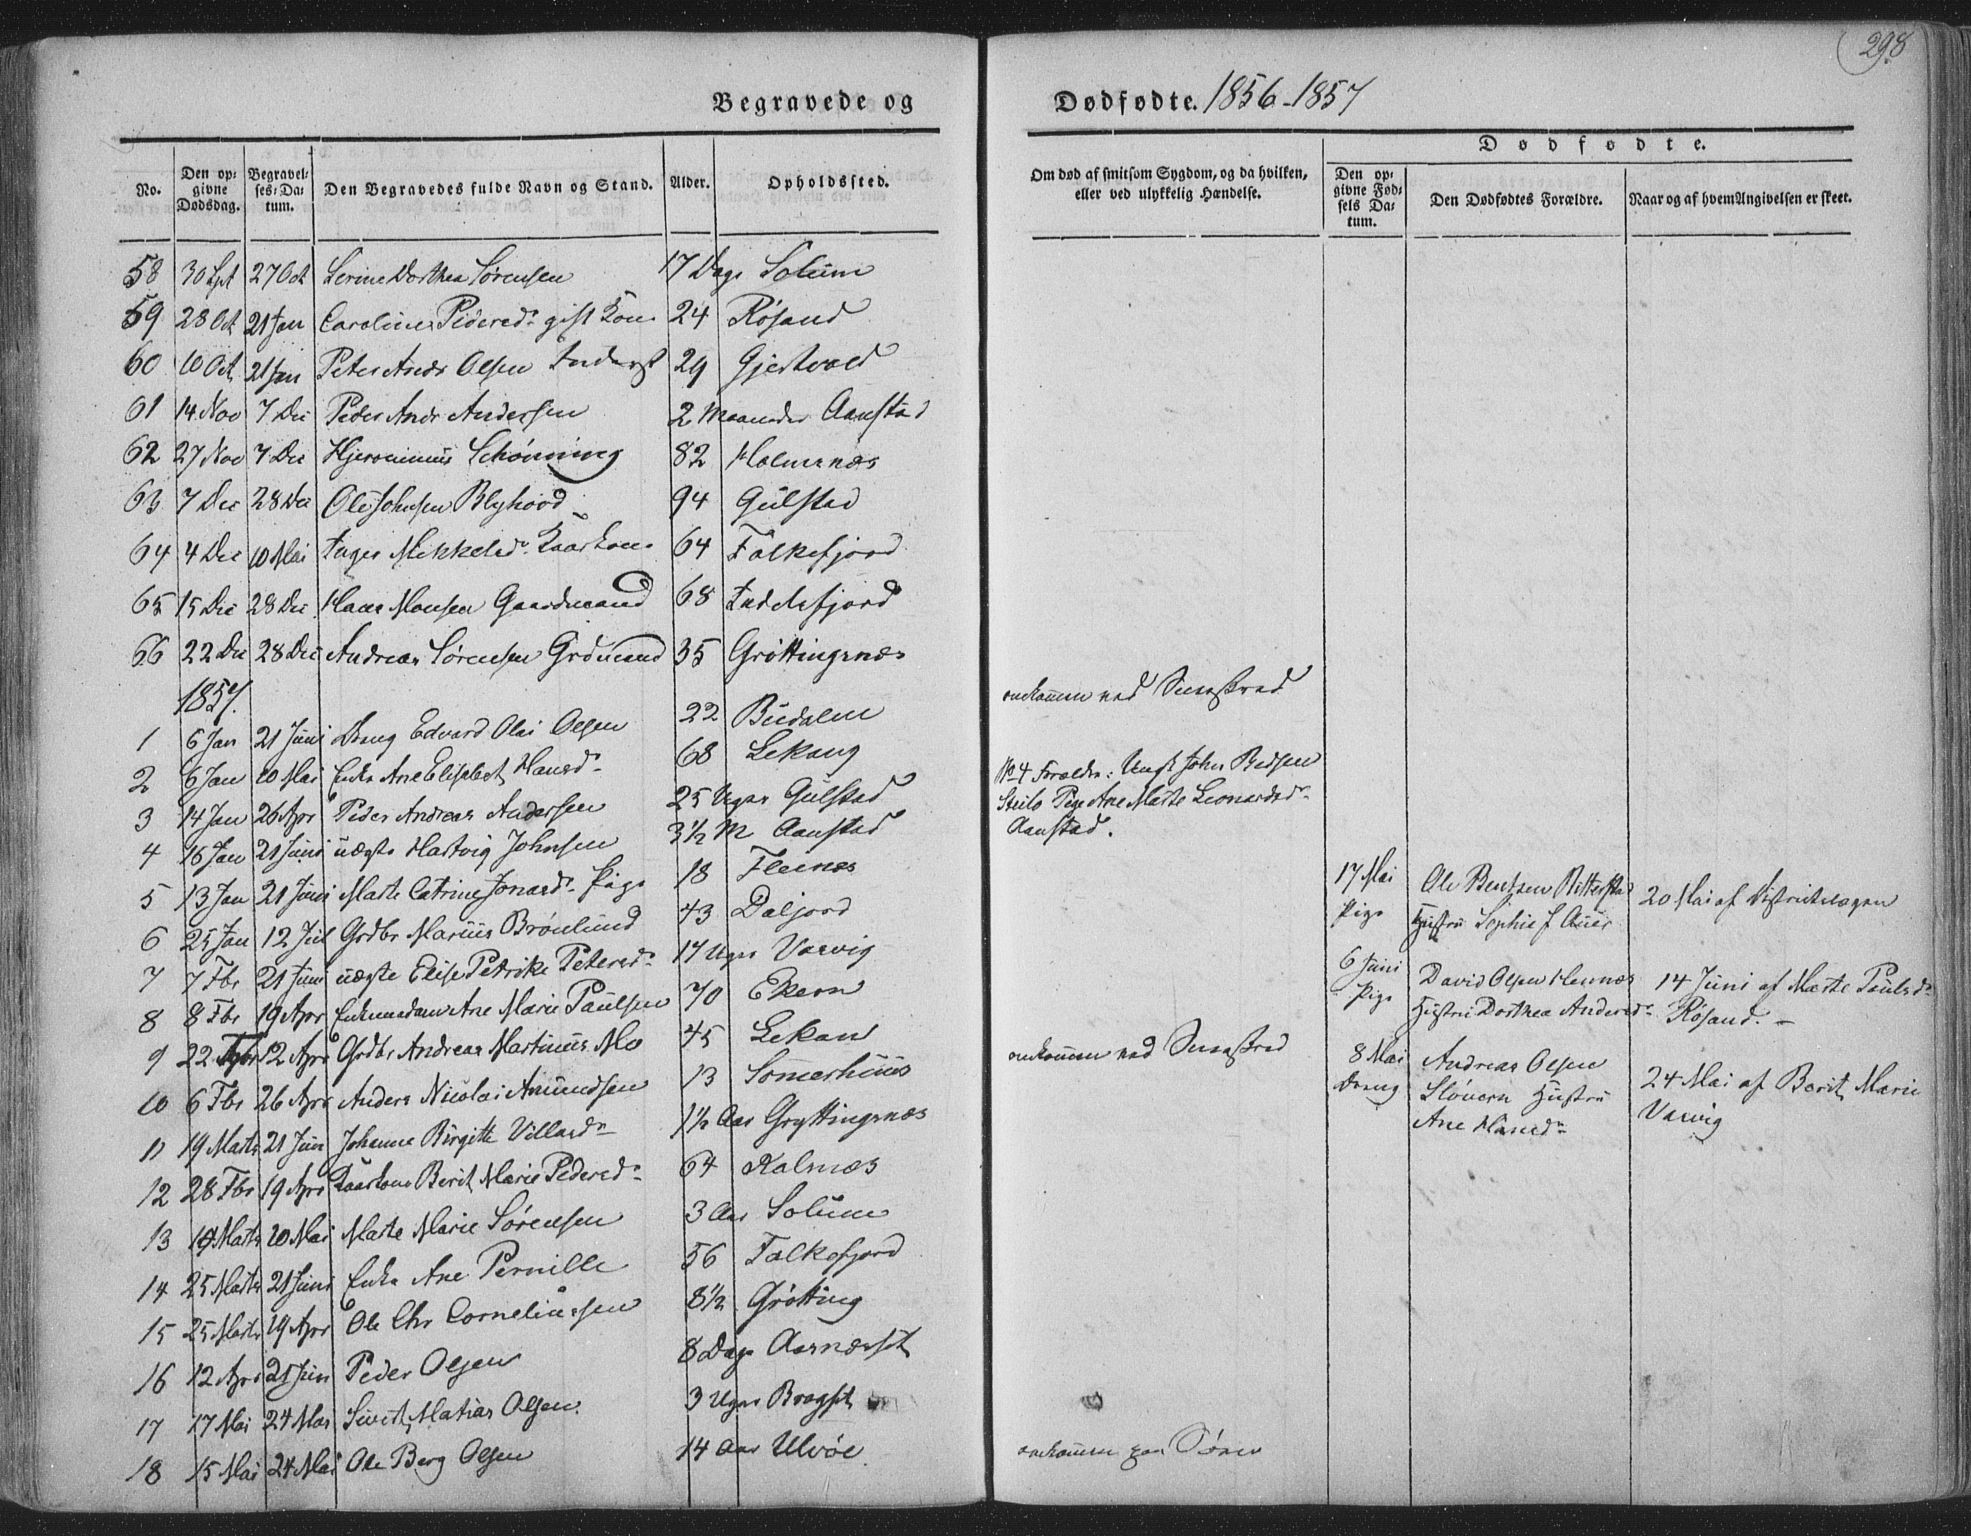 298
Begravede og Dødfødte. 1856-1857
No.
Den opgivne Dødsdag.
Begravelses-Datum.
Den Begravedes fulde Navn og Stand.
Alder.
Opholdssted.
Om død af smitsom Sygdom, og da hvilken, eller ved ulykkelig Hændelse.
Dødfødte.
Den opgivne Fødsels Datum.
Den Dødfødtes Forældre.
Naar og af hvem Angivelsen er skeet.
58 30 Spt 27 Oct Serine Dorthea Sørensen 17 Dage Solüm
59 28 Oct 21 Jan Caroline Pedersd. gift Kone 24 Røsand
60 10 Oct 21 Jan Peter Andr Olsen Inderst 29 Gjestvold
61 14 Nov 7 Dec Peder Andr Andersen 2 Maaneder Aanstad
62 27 Nov 7 Dec Hjeronimus Schønning 82 Holmsnæs
63 7 Dec 28 Dec Ole Johnsen Blyhood 94 Gülstad
64 4 Dec 10 Mai Inger Mekkelsd. Kaarkone 64 Falkefjord
65 15 Dec 28 Dec Hans Monsen Gaardmand 68 Indlefjord
66 22 Dec 28 Dec Andreas Sørensen Grdmand 35 Grøttingsnæs
1857.
1 6 Jan 21 Juni Dreng Edvard Olai Olsen 22 Budalen omkommen ved Snesskred
2 6 Jan 10 Mai Enke Ane Elisabet Hansd. 68 Lekang
3 14 Jan 26 Apr Peder Andreas Andersen 25 Uger Gülstad
4 16 Jan 21 Juni uægte Hartvig Johnsen 3½ M Aanstad
No 4 Forældre: Ungk John Bedsen
Steilo Pige Ane Marte Leonardsd.
Aanstad.
5 13 Jan 21 Juni Marte Catrine Jonasd. Pige 18 Fleinæs
6 25 Jan 12 Jul Grdbr Marius Brønlund 43 Daljord
7 7 Fbr 21 Juni uægte Elise Petrike Petersd. 17 Uger Varvig
8 8 Fbr 19 Apr Enkemadam Ane Marie Paulsen 70 Ekern
9 22 Fbr 12 Apr Grdbr Andreas Martinus Mo 45 Lekan
10 6 Fbr 26 Apr Anders Nicolai Amundsen 13 Somerhüus omkommen ved Snesskred
11 19 Marts 21 Jun Johanne Birgitte Villasd. 1½ Aar Gryttingsnæs
12 28 Fbr 19 Apr Kaarkone Berit Marie Pedersd. 64 Kalsnæs
13 19 Marts 10 Mai Marte Marie Sørensen 3 Aar Solüm
14 25 Marts 21 Juni Enke Ane Pernille 56 Falkefjord
15 25 Marts 19 Apr Ole Chr Corneliussen 8½ Grøtting
16 12 Apr 21 Jun Peder Olsen 8 Dage Aarnæsset
17 17 Mai 24 Mai Sivert Matias Olsen. 3 Uger Bragset
18 15 Mai 24 Mai Ole Berg Olsen 14 Aar Ulvöe. omkommen paa Søen
17 Mai
Pige
Ole Bentsen
Hüstru Sophie f. Auer
20 Mai af Distriktslægen
6 Juni
Pige
David Olsen Hennæs
Hüstru Dorthea Andersd.
14 Juni af Marte Paulsd.
Røsand. –
8 Mai
Dreng
Andreas Olsen
Sløvern Hüstru
Ane Hansd.
24 Mai af Berit Marie
Varvig